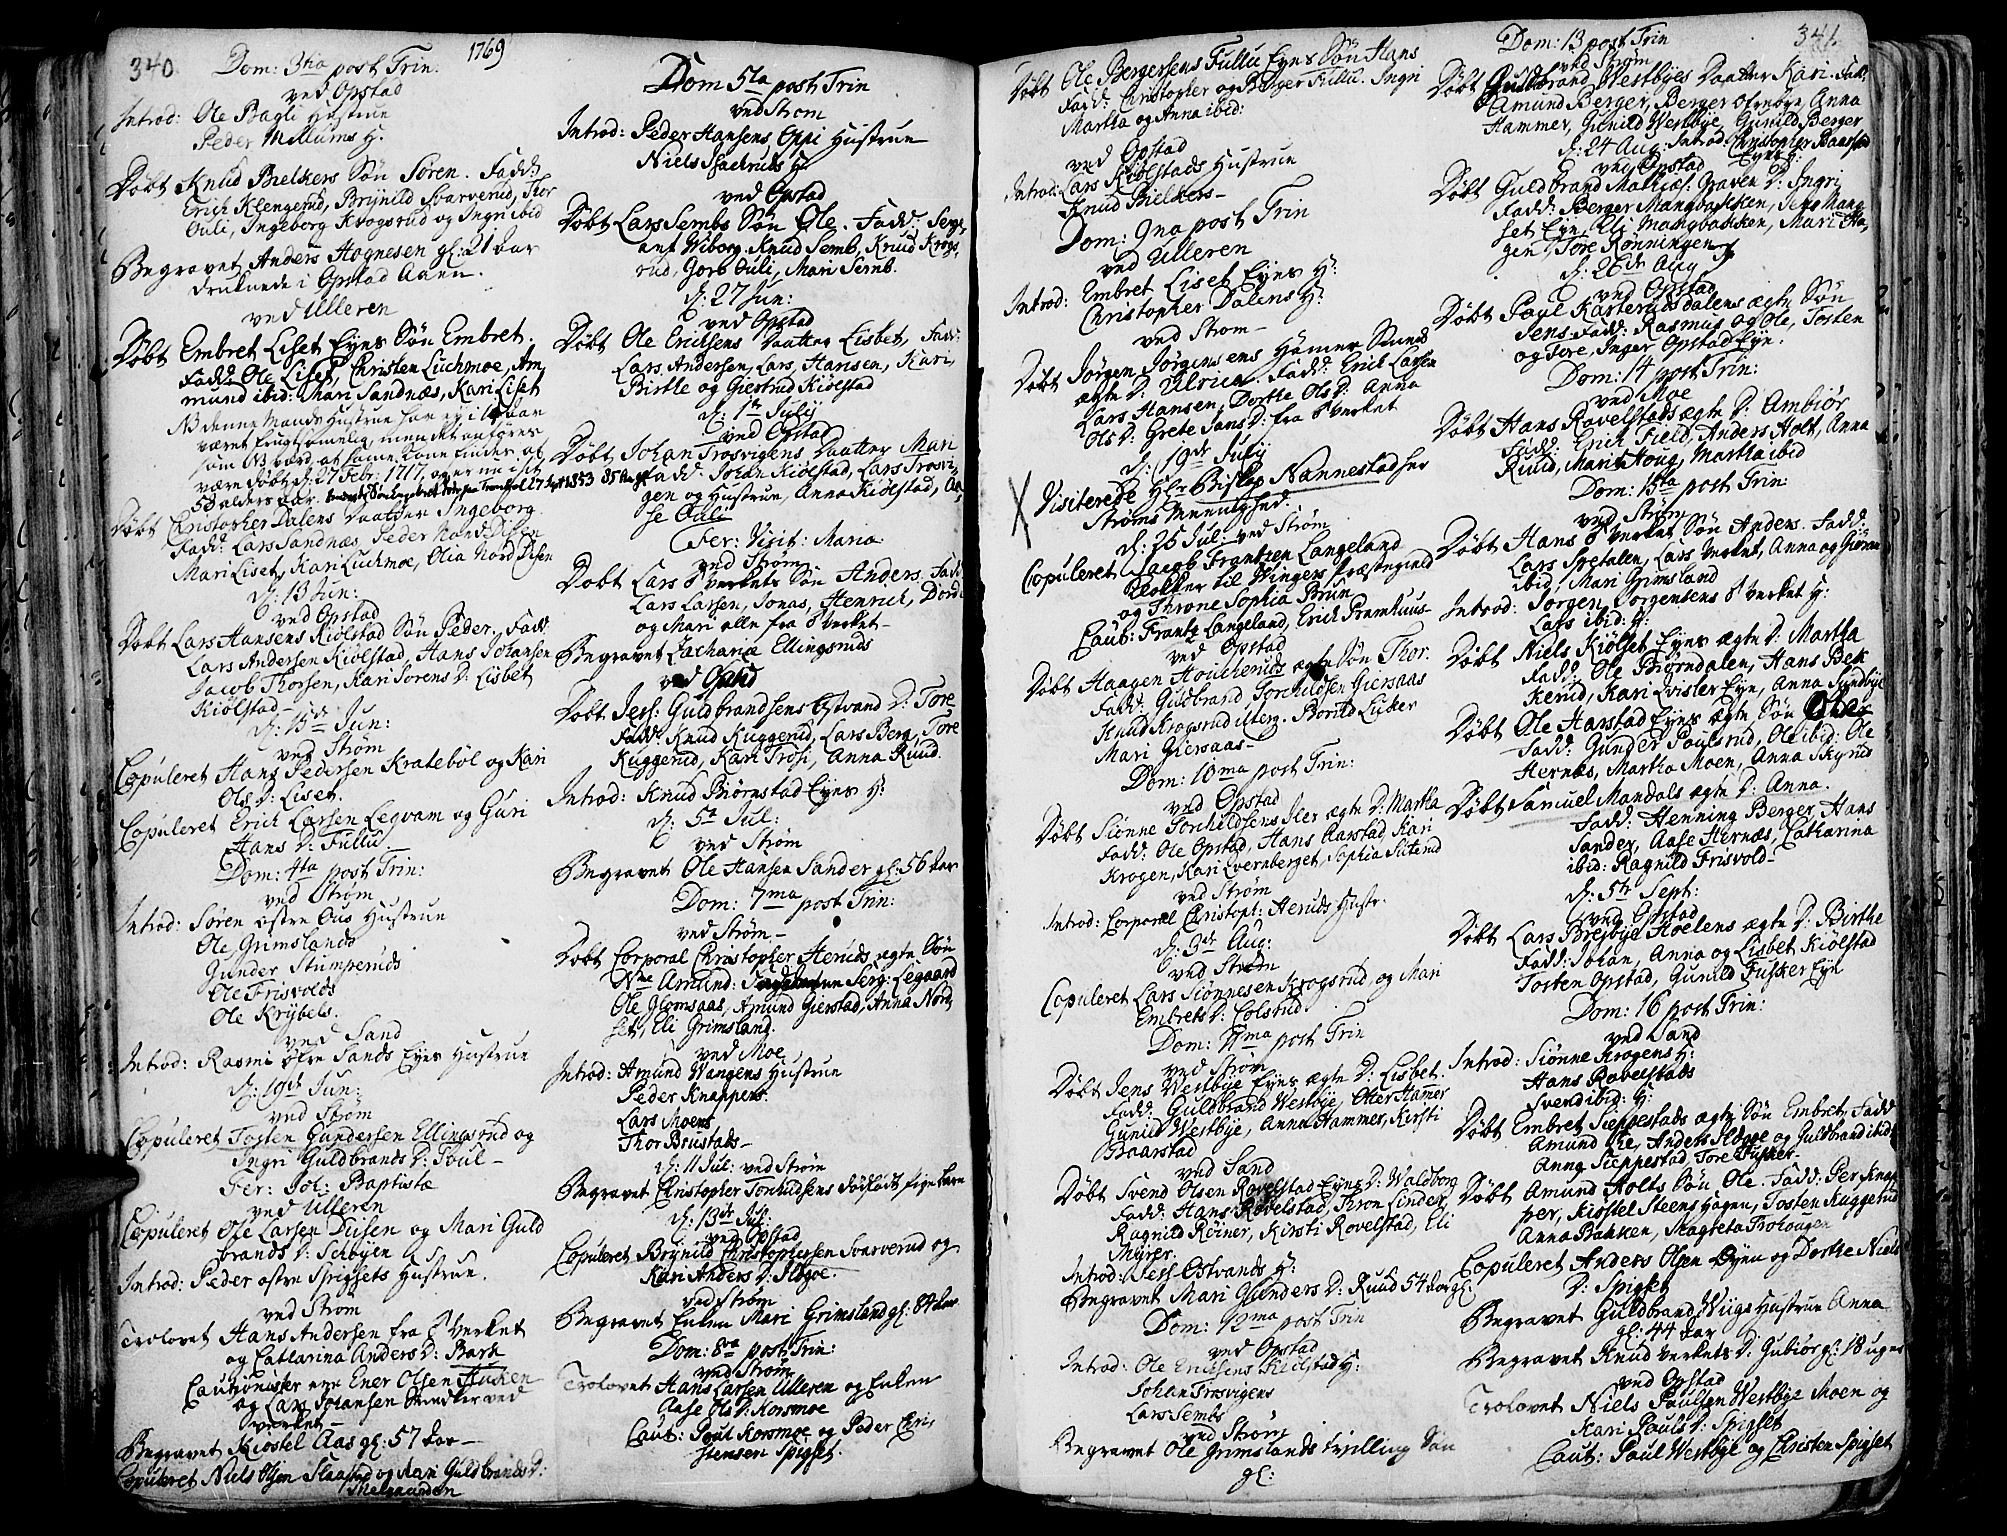 340.
Dom: 3tia post Trin. 1769
ved Opstad
Introd: Ole Bagli Hustrue
Peder Millums H.
Døbt Knud Bielkers Søn Søren. Fadd:
Erich Klengerud, Brynild Svarverud, Thor
Ouli, Ingeborg Krogsrud og Ingri ibid
Begravet Anders Hognesen gl: 21 Aar
druknede i Opstad Aaen.
ved Ulleren
Døbt Embret Liset Eyes Søn Embret.
Fadd: Ole Liset, Christen Luchmoe, Am
mund ibid: Mari Sandnæs, Kari Liset
NB denne Mands Hustrue har ey i 18 Aar
været frugtsommelig, men det anføres
som NB værd, at samme Kone findes at
være døbt d: 27 Febr: 1717, og er nu i sit
53 alders Aar.
Døbt Christopher Dalens Daatter Ingeborg.
Fadd: Lars Sandnæs, Peder Nord Disen
Mari Liset, Kari Luchmoe, Olia Nord Disen
d: 13 Jun:
ved Opstad
Døbt Lars Hansens Kiølstad Søn Peder. Fadd.
Lars Andersen Kiølstad, Hans Johansen
Jacob Thorsen, Kari Sørens D: Lisbet
Kiølstad
d: 15de Jun:
ved Strøm
Copuleret Hans Pedersen Kratebøl og Kari
Ols D: Liset.
Copuleret Erich Larsen Legvam og Guri
Hans D: Fullu.
Dom: 4ta post Trin:
ved Strøm
Introd: Søren østre Oug Hustrue
Ole Grimslands
Gunder Stumperuds
Ole Frisvolds
Ole Krybels.
ved Sand
Introd: Rasmi øfre Sands Eyes Hustrue
d: 19de Jun:
ved Strøm
Copuleret Tosten Gundersen Ellingsrud og
Ingri Guldbrands D: Foul
Fer: Joh: Baptistæ
ved Ulleren
Copuleret Ole Larsen Disen og Mari Guld
brands D: Schøyen
Introd: Peder østre Spigsets Hustrue.
ved Strøm
Trolovet Hans Andersen fra Verket
og Catharina Anders D: Bark
Cautionister ere Ener Olsen Aucken
og Lars Johansen Snedker ved
Verket
Begravet Kiostel Aas gl: 57 Aar
Copuleret Niels Olsen Slaastad og Kari Guldbrands D:
Mælgaarden
Dom 5ta post Trin
ved Strøm
Introd: Peder Hansens Oppi Hustrue
Niels Skaelruds H:
ved Opstad
Døbt Lars Sembs Søn Ole. Fadd: Serg,
ant Wiborg. Knud Semb, Knud Krogs,
rud, Jorb Ouli, Mari Semb.
d: 27 Jun:
ved Opstad
Døbt Ole Erichsens Daatter Lisbet, Fadd:
Lars Andersen, Lars Hansen, Kari,
Birthe og Giertrud Kiølstad
d: 1te July
ved Opstad
Døbt Johan Trosvigens Daatter Mari
Fadd: Johan Kiølstad, Lars Trosvi,
gen og Hustrue, Anna Kiølstad, Aa,
se Ouli
Fer: Visit: Mariæ
ved Strøm
Døbt Lars Verkets Søn Anders. Fadd
Lars Larsen, Jonas, Henrich, Dord
og Mari alle fra Verket
Begravet Zacharia Ellingsruds
ved Sand
Døbt Jess: Guldbrandsens Østvand D: Tore
Fadd: Knud Kuggerud, Lars Berg, Tore
Kuggerud, Kari Trosi, Anna Ruud.
Introd: Knud Biørnstad Eyes H:
d: 5te Jul:
ved Strøm
Begravet Ole Hansen Sander gl: 56 Aar
Dom: 7ma post Trin:
ved Strøm
Døbt Corporal Christopher Heruds ægte Søn
Nne Amund: Serg: Legaard
Ole Glomsaas, Amund Gierstad, Anna Nord,
set, Eli Grimsland.
ved Moe
Introd: Amund Wangens Hustrue
Peder Knappers
Lars Moens
Thor Brustads
d: 11 Jul: ved Strøm
Begravet Christopher Torkildsens dødfødt pige barn
d: 13de Jul:
ved Opstad
Copuleret Brynild Christophersen Svarverud og
Kari Anders D: Flogoe.
ved Strøm
Begravet Enken Mari Grimsland gl: 84 Aar
Dom: 8va post Trin:
ved Strøm
Trolovet Hans Larsen Ulleren og Enken
Aase Ols D: Korsmoe
Caut: Poul Korsmoe og Peder Chri
stensen Spigset.
341.
Døbt Ole Bergersens Fullu Eyes Søn Hans
Fadd: Christopher og Berger Fullu. Ingri
Martha og Anna ibid:
ved Opstad
Introd: Lars Kiølstads Hustrue
Knud Bielkers
Dom: 9na post Trin
ved Ulleren
Introd: Embret Liset Eyes H:
Christopher Dalens H:
ved Strøm
Døbt Jørgen Jørgensens Hamer Smeds
ægte D: Ulrica. Fadd: Erich Larsen
Lars Hansen, Dorthe Ols D: Anna
Ols D: Grete Jans D: fra Verket
d: 19de July
Visiterede Hr Biskop Nannestad her
Strøms Meenighed.
d: 25 Jul: ved Strøm
Copuleret Jacob Frantzen Langeland
Klokker til Wingers Præstegield
og Throne Sophia Brun
Caut: Frantz Langeland, Erich Fremhuus
ved Opstad
Døbt Haagen Houcheruds ægte Søn Thor.
Fadd: Guldbrand, Torchildsen Giersaas
Knud Krogsrud Borild Lucker
Mari Giersaas
Dom: 10ma post Trin:
ved Opstad
Døbt Siønne Torchildsens Iler ægte D: Martha
Fadd: Ole Opstad, Hans Aarstad Kari
Krogen, Kari Qvernberget, Sophia Sliterud
ved Strøm
Introd: Corporal Christoph: Heruds Hustr.
d: 3de Aug:
ved Strøm
Copuleret Lars Siønnesen Krogsrud og Mari
Embrets D: Colsrud
Dom: 11ma post Trin
ved Strøm
Døbt Jens Westbye Eyes ægte D: Lisbet
Fadd: Guldbrand Westbye, Otter Hamer
Gunild Westbye, Anna Hammer, Kersti
Baarstad
ved Sand
Døbt Svend Olsen Rovelstad Eyes D: Waldborg
Fadd: Hans Rovelstad, Thron Linder,
Ragnild Røiner, Kirsti Rovelstad, Eli
Myrer.
Introd: Jess Østvands H:
Begravet Mari Gunders D: Ruud 54 Aar gl:
Dom: 12ma post Trin
ved Opstad
Introd: Ole Erichsens Kiølstad H:
Johan Trosvigens
Lars Sembs
ved Strøm
Begravet Ole Grimslands tvilling Søn
gl:
Dom: 13 post Trin
ved Strøm
Døbt Guldbrand Westbyes Daatter Kari. Fadd:
Amund Berger, Berger Ofrnøye, Anna
Hammer, Gunild Westbye, Gunild Berger
d: 24 Aug: Introd: Christopher Baastad
Eyes H:
ved Opstad
Døbt Guldbrand Mathiæs: Graven D: Ingri
Fadd: Berger Mangbakken, Jens Mang
set Eyn, Eli Mangbakken, Mari Ha,
gen, Tore Rønningen
d: 26de Aug
ved Opstad
Døbt Povl Karterudsdalens ægte Søn
Jens. Fadd: Rasmus og Ole, Tosten
og Tore, Inger Opstad Eyn.
Dom: 14 post Trin:
ved Moe
Døbt Hans Rovelstads ægte D: Ambiør
Fadd: Erich Field, Anders Holt, Anna
Ruud, Mari Houg, Martha ibid
Dom: 15ta post Trin:
ved Strøm
Døbt Hans Verket Søn Anders. Fadd:
Lars Spetalen, Lars Verket, Anna og Giøran
ibid, Mari Grimsland
Introd: Jørgen Jorgensens Verket H:
Lars ibid: H:
Døbt Niels Kiølset Eyes ægte D: Martha
Fadd: Ole Biørndalen, Hans Bek
kerud, Kari Qvisler Eyn, Anna Sundbye
Døbt Ole Harstad Eyes ægte Søn Oluf
Fadd: Gunder Poulsrud, Ole ibid: Ole
Hernæs, Martha Moen, Anna Skyrud
Døbt Samuel Mandals ægte D: Anna.
Fadd: Henning Berger, Hans
Sander, Aase Hernæs, Catharina
ibid: Ragnild Frisvold
d: 5te Sept:
ved Opstad
Døbt Lars Brejbye Hoelens ægte D: Birthe
Fadd: Johan, Anna og Lisbet Kiølstad
Tosten Opstad, Gunild Fusker Eyn
Dom: 16 post Trin:
ved Sand
Introd: Siønne Krogens H:
Hans Rovelstads
Svend ibid: H:
Døbt Embret Sieppestads ægte Søn Embret, Fadd
Amund Ree, Anders Flogoe og Guldbrand ibid:
Anna Sieppestad, Tore Fusker
Døbt Amund Holts Søn Ole. Fadd: Per Knap
per, Kiostel Steenshagen, Tosten Kuggerud
Anna Bakken, Magreta Trohougen
Copuleret Anders Olsen Øyen og Dorthe Niels
D: Spigset
Begravet Guldbrand Wiigs Hustrue Anna
gl: 44 Aar
Begravet Knud Verkets D: Gubiør gl: 18 uger
ved Opstad
Trolovet Niels Paulsen Westbye Moen og
Kari Pauls D: Spigset
Caut: Paul Westbye og Christen Spigset